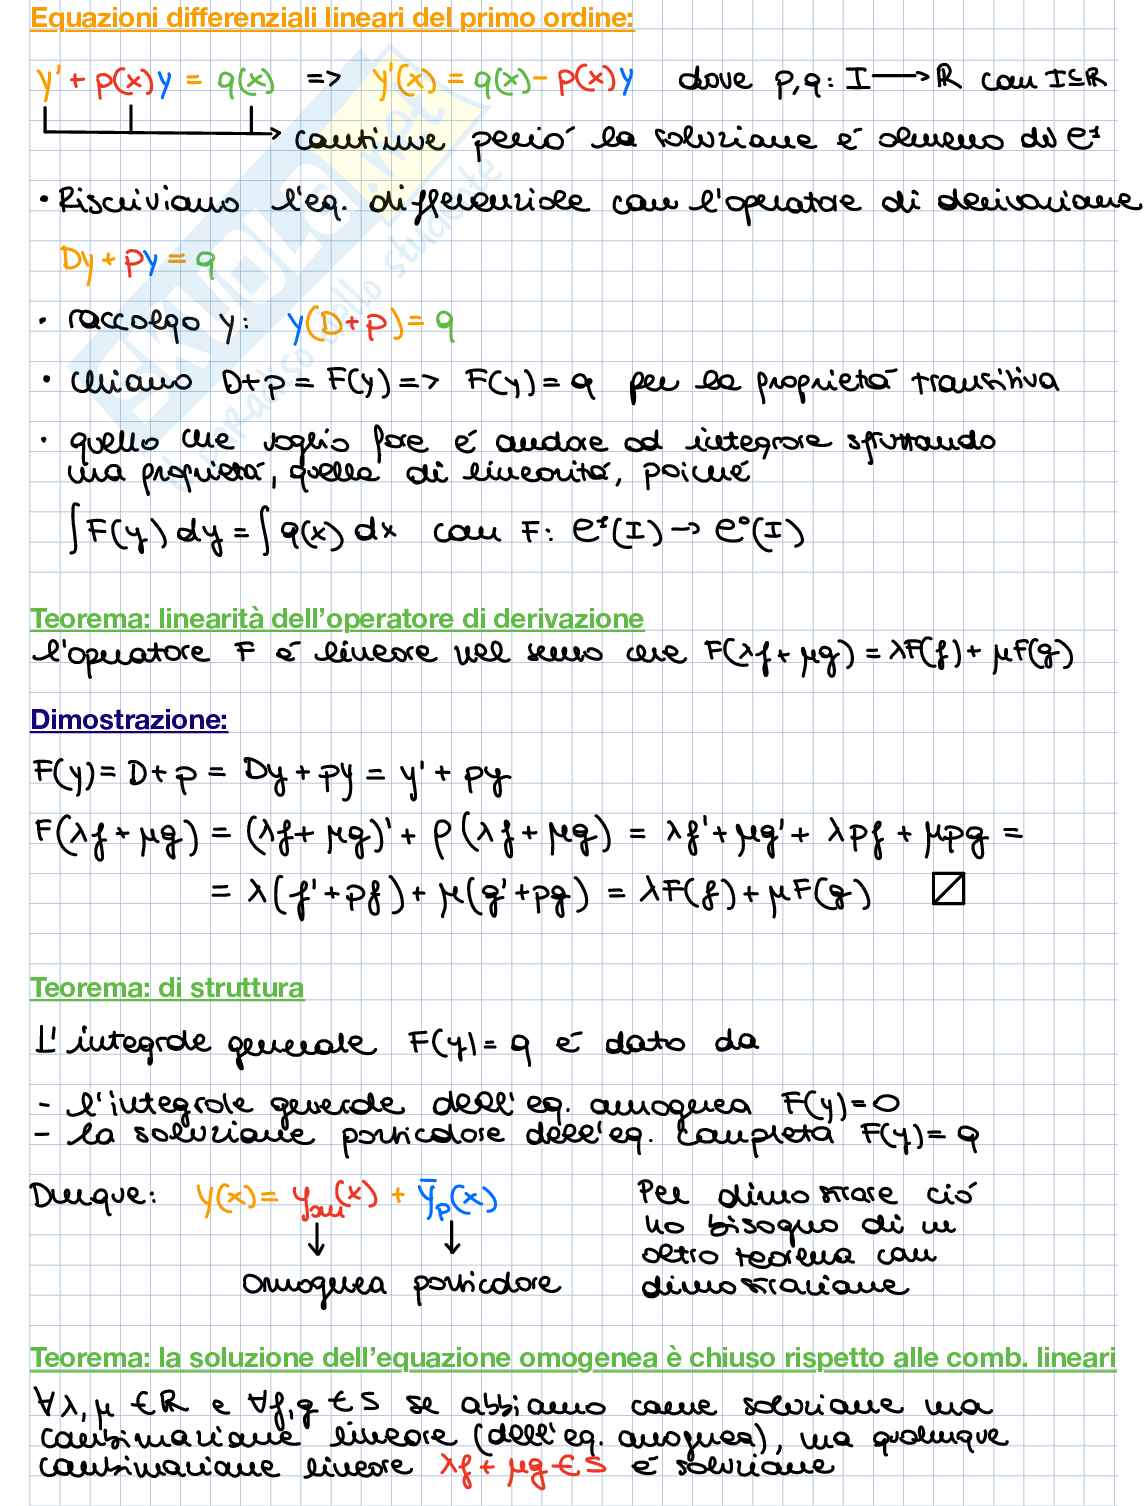 Equazioni differenziali lineari del primo ordine:
y' + p(x)y = q(x) => y'(x) = q(x) - p(x)y dove p,q: I → ℝ con I⊆ℝ
continue perciò la soluzione é almeno di C¹
• Riscriviamo l'eq. differenziale con l'operatore di derivazione
Dy + py = q
• raccolgo y: y(D+p) = q
• chiamo D+p = F(y) => F(y) = q per la proprietá transitiva
• quello che voglio fare é andare ad integrare sfruttando
una proprietá, quella di linearitá, poiché
∫F(y) dy = ∫q(x) dx con F: C¹(I) → C⁰(I)
Teorema: linearità dell'operatore di derivazione
l'operatore F é lineare nel senso che F(λf + μg) = λF(f) + μF(g)
Dimostrazione:
F(y) = D+p = Dy + py = y' + py
F(λf + μg) = (λf + μg)' + p(λf + μg) = λf' + μg' + λpf + μpg =
= λ(f' + pf) + μ(g' + pg) = λF(f) + μF(g)
Teorema: di struttura
L'integrale generale F(y) = q é dato da
- l'integrale generale dell'eq. omogenea F(y) = 0
- la soluzione particolare dell'eq. completa F(y) = q
Dunque: y(x) = yₒₘ(x) + ȳₚ(x)
omogenea particolare
Per dimostrare ció
ho bisogno di un
altro teorema con
dimostrazione
Teorema: la soluzione dell'equazione omogenea è chiuso rispetto alle comb. lineari
∀λ, μ ∈ ℝ e ∀f, g ∈ S se abbiamo come soluzione una
combinazione lineare (dell'eq. omogenea), una qualunque
combinazione lineare λf + μg ∈ S é soluzione
SKUOLA.net
il paradiso dello studente